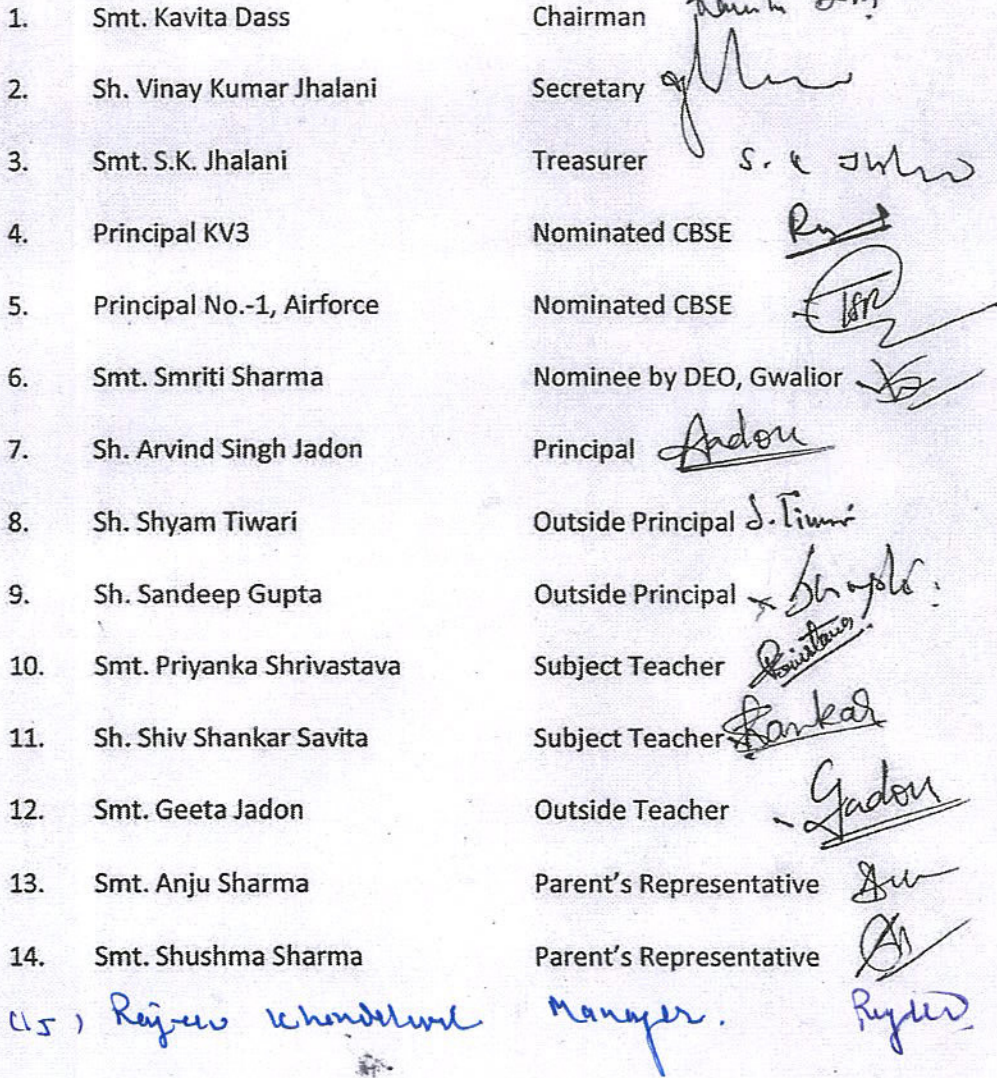 1. Smt. Kavita Dass Chairman
2. Sh. Vinay Kumar Jhalani Secretary
3. Smt. S.K. Jhalani Treasurer S. K
4. Principal KV3 Nominated CBSE
5. Principal No.-1, Airforce Nominated CBSE
6. Smt. Smriti Sharma Nominee by DEO, Gwalior
7. Sh. Arvind Singh Jadon Principal Aadon
8. Sh. Shyam Tiwari Outside Principal
9. Sh. Sandeep Gupta Outside Principal
10. Smt. Priyanka Shrivastava Subject Teacher
11. Sh. Shiv Shankar Savita Subject Teacher Sankar
12. Smt. Geeta Jadon Outside Teacher Gadon
13. Smt. Anju Sharma Parent's Representative
14. Smt. Shushma Sharma Parent's Representative
(15) Manager.